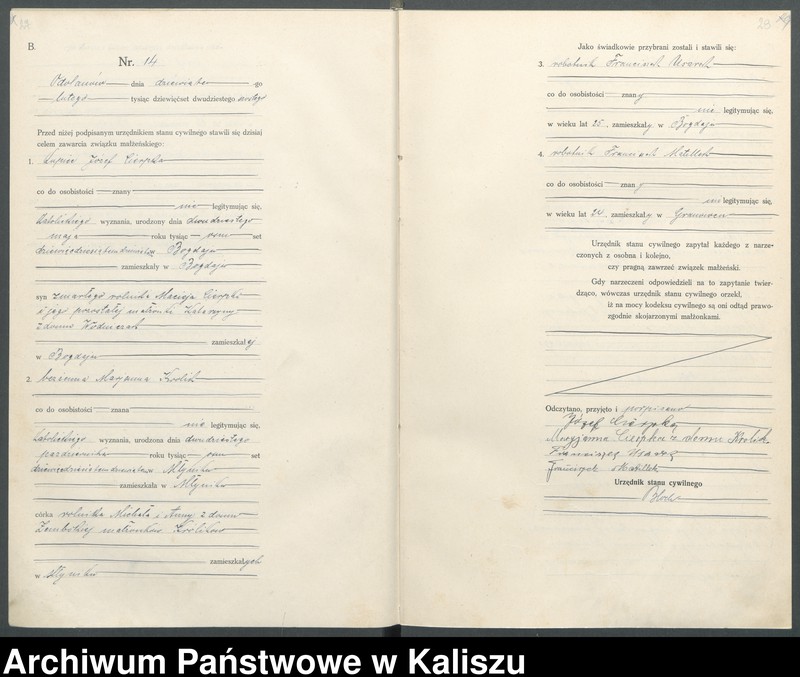 B.
Nr. 14
Odolanów dnia dziewiątego
lutego tysiąc dziewięćset dwudziestego
Przed niżej podpisanym urzędnikiem stanu cywilnego stawili się dzisiaj
celem zawarcia związku małżeńskiego:
1. Józef Cierpka
co do osobistości znany
nie legitymując się,
katolickiego wyznania, urodzony dnia dwudziestego
maja roku tysiąc osm set
w Bogdaju
zamieszkały w Bogdaju
syn zmarłego rolnika Macieja Cierpki
i jego pozostałej małżonki Katarzyny
z domu
zamieszkałej
w Bogdaju
2. Maryanna Królik
co do osobistości znana
nie legitymując się,
katolickiego wyznania, urodzona dnia dwudziestego
października roku tysiąc osm set
w Młyniku
zamieszkała w Młyniku
córka rolnika Michała i Anny z domu
małżonków Królików
zamieszkałych
w Młyniku
Jako świadkowie przybrani zostali i stawili się:
3. robotnik Franciszek
co do osobistości znany
nie legitymując się,
w wieku lat 25, zamieszkały w Bogdaju
4. robotnik Franciszek
co do osobistości znany
nie legitymując się,
w wieku lat 24, zamieszkały w
Urzędnik stanu cywilnego zapytał każdego z narze-
czonych z osobna i kolejno,
czy pragną zawrzeć związek małżeński.
Gdy narzeczeni odpowiedzieli na to zapytanie twier-
dząco, wówczas urzędnik stanu cywilnego orzekł,
iż na mocy kodeksu cywilnego są oni odtąd prawo-
zgodnie skojarzonymi małżonkami.
Odczytano, przyjęto i podpisano
Józef Cierpka
Maryjanna Cierpka z domu Królik
Franciszek
Franciszek
Urzędnik stanu cywilnego
Archiwum Państwowe w Kaliszu